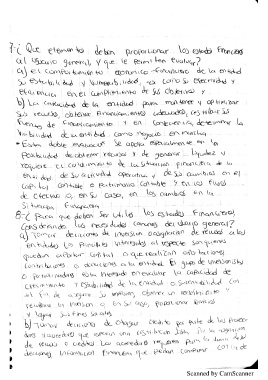 7-¿Que elementos deben proporcionar los estados financieros
al usuario general y que le permiten evaluar?
a) El comportamiento económico-financiero de la entidad
su estabilidad y vulnerabilidad, así como su efectividad y
eficiencia en el cumplimiento de sus objetivos y
b) La capacidad de la entidad para mantener y optimizar
sus recursos, obtener financiamientos adecuados, retribuir sus
fuentes de financiamiento y en consecuencia, determinar la
viabilidad de la entidad como negocio en marcha
• Esta doble evaluación se apoya especialmente en la
posibilidad de obtener recursos y de generar liquidez y
requiere el conocimiento de la situación financiera de la
entidad de su actividad operativa y de sus cambios en el
capital contable o patrimonio contable y en los flujos
de efectivo o, en su caso, en los cambios en la
situación financiera
8-¿Para que deben ser utiles los estados financieros,
considerando las necesidades comunes del usuario general?
a) Tomar decisiones de inversion o asignacion de recursos a las
entidades los principales interesados al respecto son quienes
puedan aportar capital o que realizan aportaciones
contribuciones o donaciones a la entidad El grupo de inversionistas
o patrocinadores esta interesado en evaluar la capacidad de
crecimiento y estabilidad de la entidad y su rentabilidad con
el fin de asegurar su inversion, obtener un rendimiento y
recuperar la inversion o, en su caso, proporcionar servicios
y lograr sus fines sociales
b) Tomar decisiones de otorgar credito por parte de los proveedores
y acreedores que esperan una retribucion justa por la asignacion
de recursos o creditos Los acreedores requieren para la toma de
decisiones informacion financiera que puedan comparar
Scanned by CamScanner